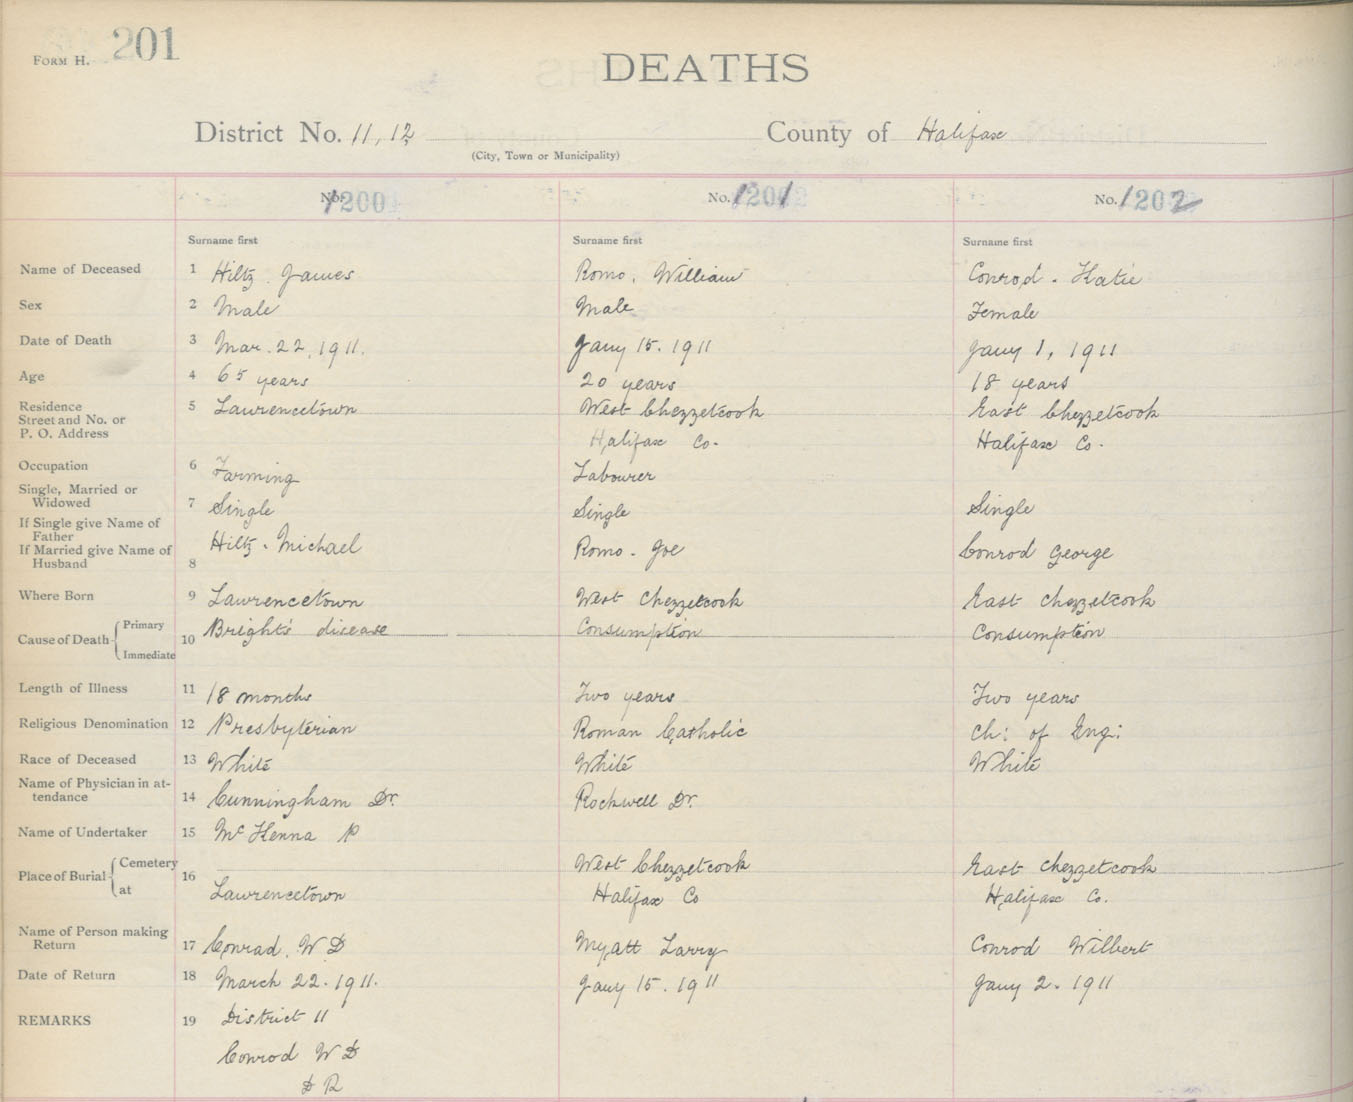 FORM H. 201
DEATHS
District No. 11, 12 County of Halifax
(City, Town or Municipality)
No. 1200 No. 1201 No. 1202
Surname first Surname first Surname first
Name of Deceased 1 Hiltz. James Romo, William Conrod - Katie
Sex 2 Male Male Female
Date of Death 3 Mar. 22, 1911. Jany 15. 1911 Jany 1, 1911
Age 4 65 years 20 years 18 years
Residence 5 Lawrencetown West Chezzetcook East Chezzetcook
Street and No. or
P. O. Address Halifax Co. Halifax Co.
Occupation 6 Farming Labourer
Single, Married or
Widowed 7 Single Single Single
If Single give Name of
Father
If Married give Name of Hiltz. Michael Romo - Joe Conrod George
Husband 8
Where Born 9 Lawrencetown West Chezzetcook East Chezzetcook
Cause of Death Primary 10 Bright's disease Consumption Consumption
Immediate
Length of Illness 11 18 months Two years Two years
Religious Denomination 12 Presbyterian Roman Catholic Ch: of Eng:
Race of Deceased 13 White White White
Name of Physician in at-
tendance 14 Cunningham Dr. Rockwell Dr.
Name of Undertaker 15 McKenna P
Place of Burial Cemetery 16 West Chezzetcook East Chezzetcook
at Lawrencetown Halifax Co Halifax Co.
Name of Person making
Return 17 Conrad. W D Myatt Larry Conrod Wilbert
Date of Return 18 March 22. 1911. Jany 15. 1911 Jany 2. 1911
REMARKS 19 District 11
Conrod W D
D R